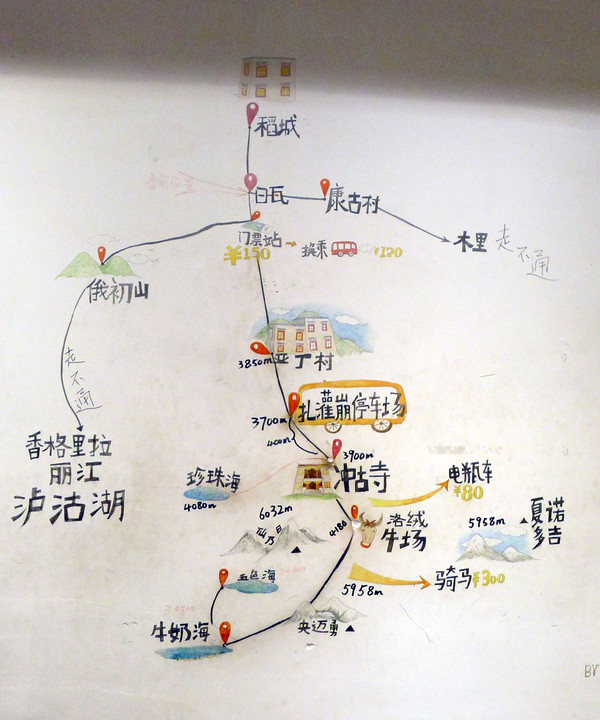 稻城
当前位置
日瓦
康古村
木里
走不通
门票站
¥150
换乘
¥120
俄初山
走不通
香格里拉
丽江
泸沽湖
亚丁村
3850m
扎灌崩停车场
3700m
400m
3900m
冲古寺
珍珠海
4080m
电瓶车
¥80
6032m
仙乃日
4180
洛绒
牛场
5958m
夏诺
多吉
五色海
骑马¥300
5958m
牛奶海
央迈勇
BY